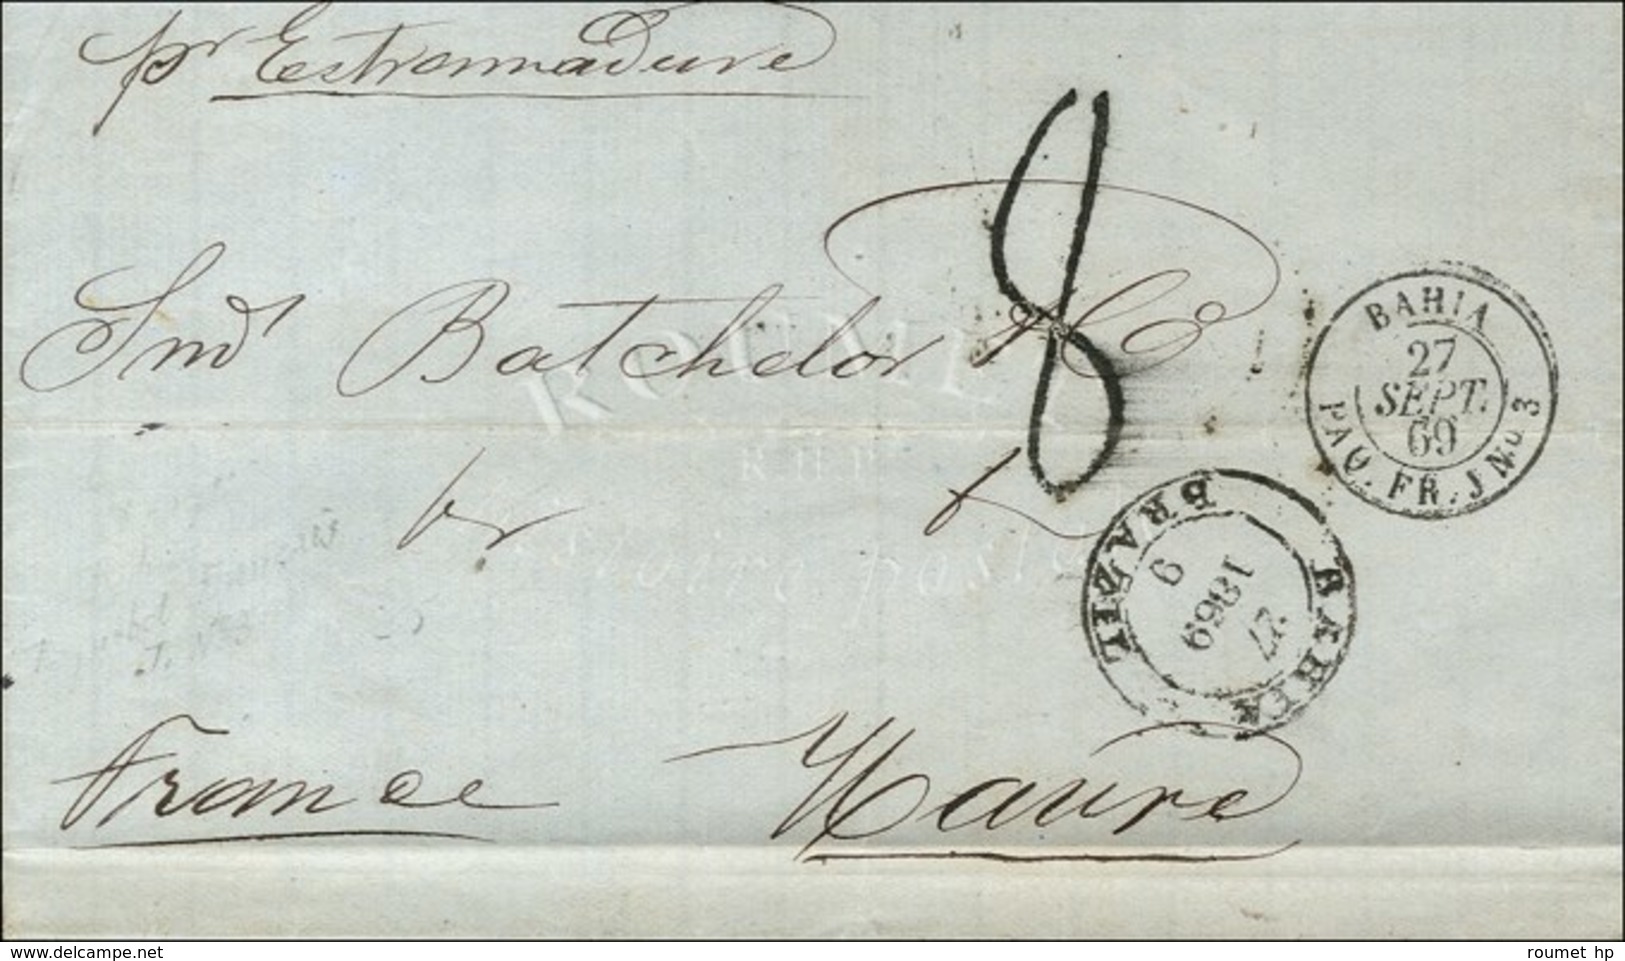 pr Estremadure
8
Batchelor & Co
BAHIA
27
SEPT.
69
PAQ. FR. J No 3
ROUMET
RHP
histoire postale
BAHIA
BRAZIL
27
1869
9
France Havre
www.delcampe.net
roumet hp